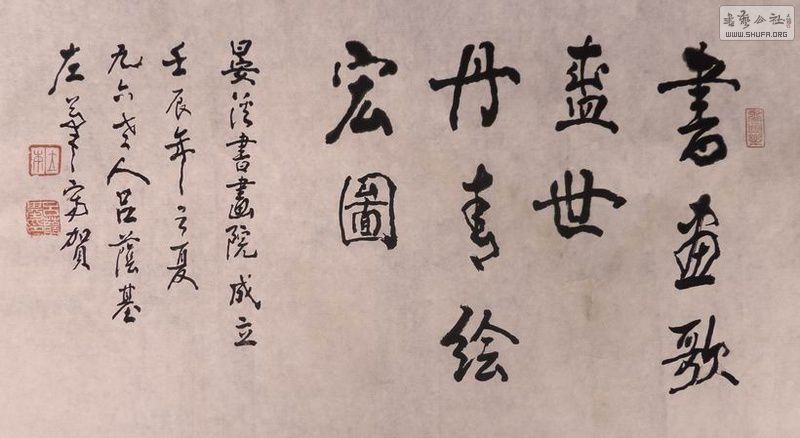 書画歌
盛世
丹青绘
宏圖
晏溪書畫院成立
壬辰年之夏
九六老人呂蔭基
左筆寫賀
書藝公社
WWW.SHUFA.ORG